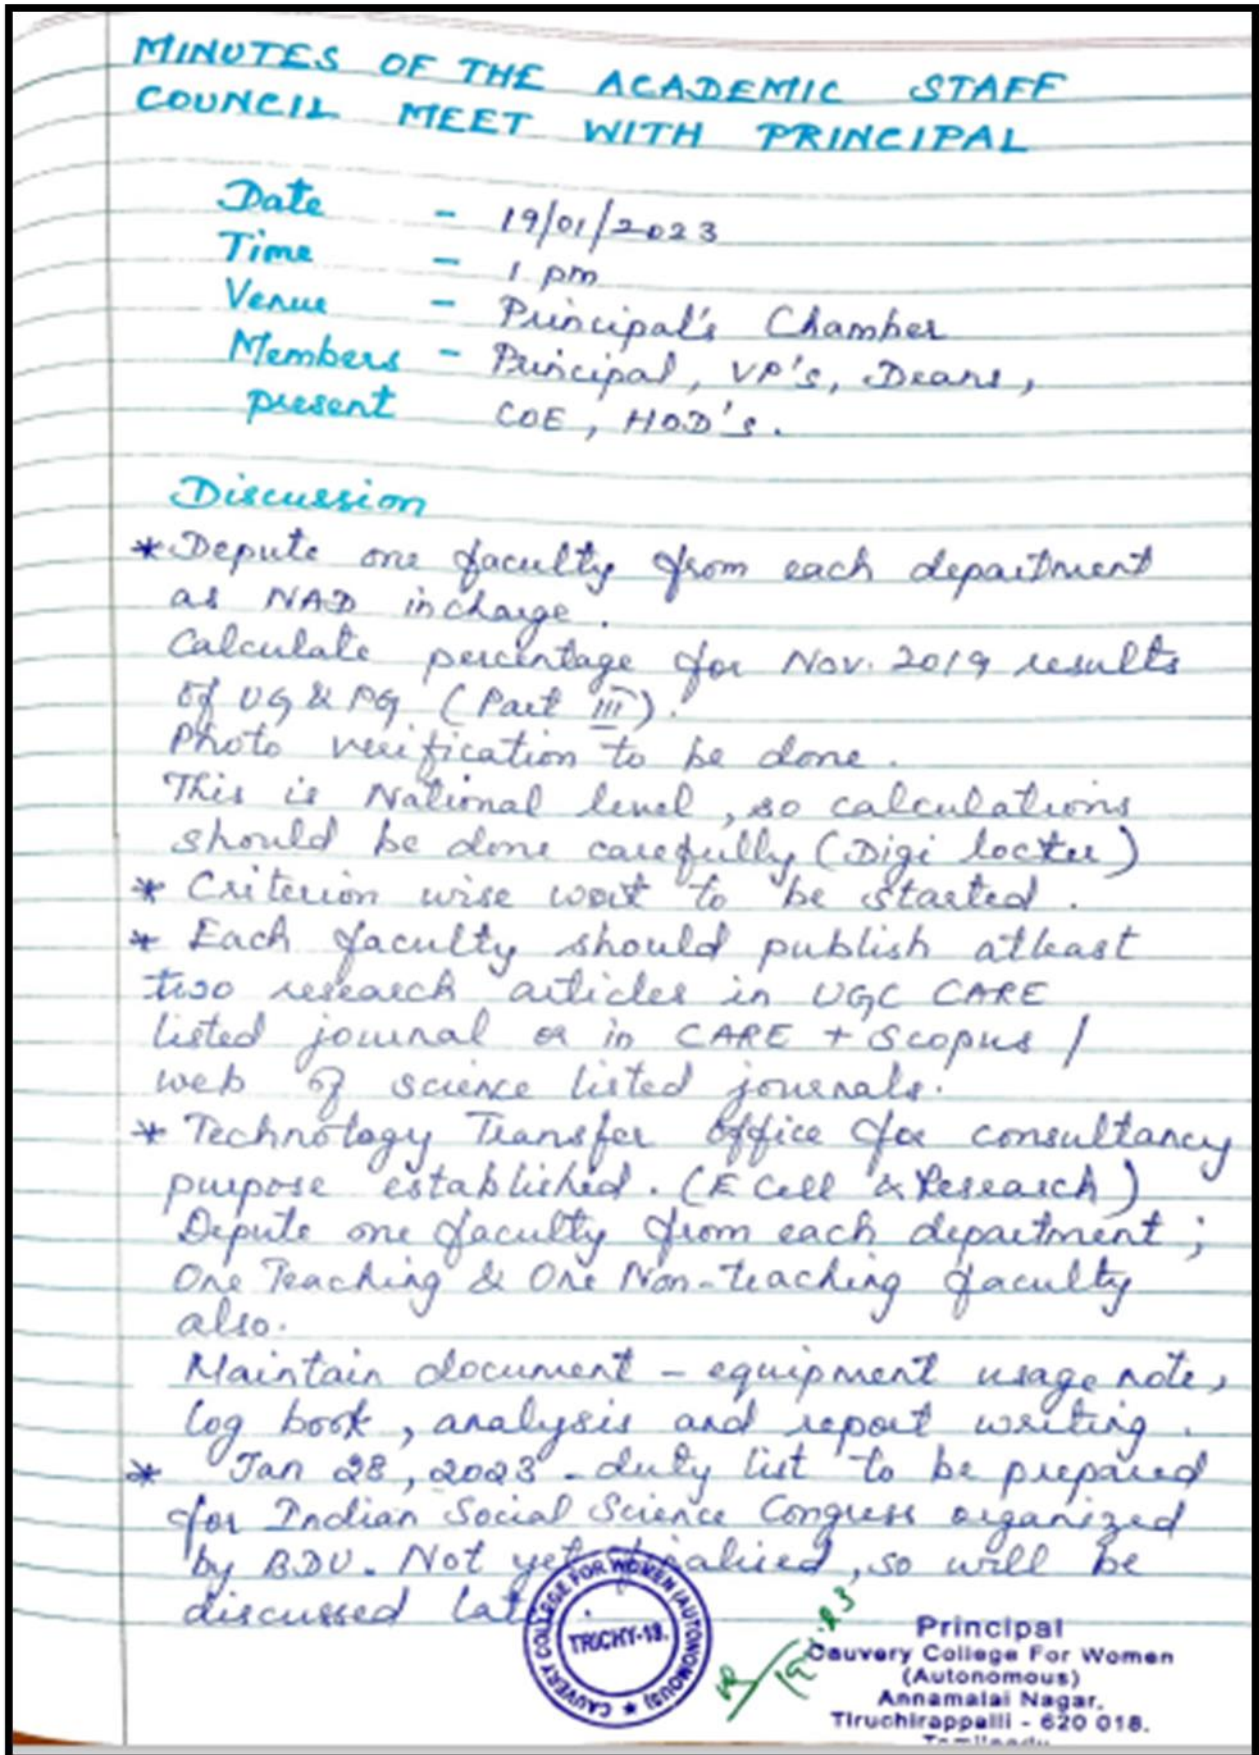 MINUTES OF THE ACADEMIC STAFF
COUNCIL MEET WITH PRINCIPAL
Date - 19/01/2023
Time - 1 pm
Venue - Principal's Chamber
Members - Principal, VP's, Deans,
present COE, HOD's.
Discussion
* Depute one faculty from each department
as NAD incharge.
Calculate percentage for Nov. 2019 results
of UG & PG (Part III).
Photo verification to be done.
This is National level, so calculations
should be done carefully (Digi locker)
* Criterion wise work to be started.
* Each faculty should publish atleast
two research articles in UGC CARE
listed journal or in CARE + Scopus /
web of science listed journals.
* Technology Transfer Office for consultancy
purpose established. (E Cell & Research)
Depute one faculty from each department;
One Teaching & One Non-teaching faculty
also.
Maintain document - equipment usage note,
log book, analysis and report writing.
* Jan 28, 2023 - duty list to be prepared
for Indian Social Science Congress organized
by BDU. Not yet finalised, so will be
discussed
CAUVERY COLLEGE FOR WOMEN (AUTONOMOUS)
TRICHY-18.
Principal
Cauvery College For Women
(Autonomous)
Annamalai Nagar,
Tiruchirappalli - 620 018.